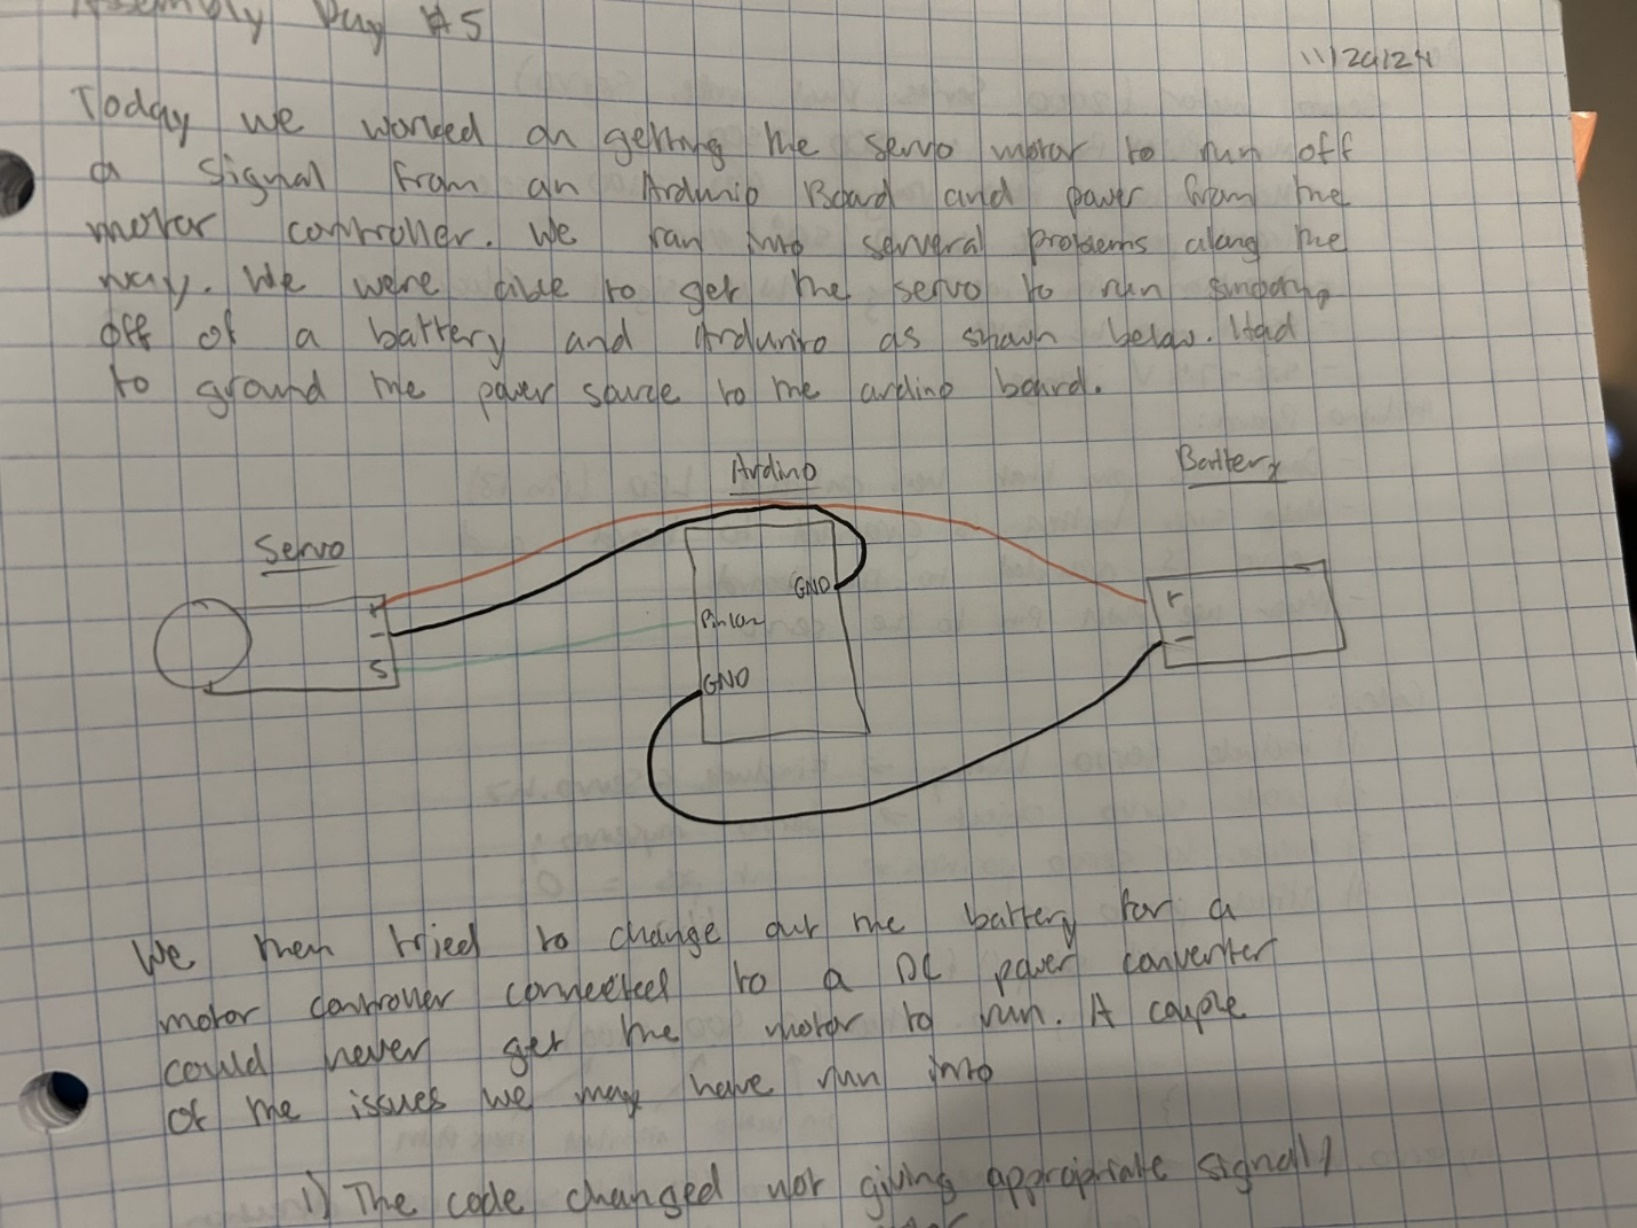 Assembly Day #5
11/24
Today we worked on getting the servo motor to run off
a signal from an Ardunio Board and power from the
motor controller. We ran into serveral problems along the
way. We were able to get the servo to run
off of a battery and Ardunito as shown below. Had
to ground the power source to the ardino board.
Ardino
Battery
Servo
+
-
S
GND
Pin
GND
+
-
We then tried to change out the battery for a
motor controller connected to a DC power converter
could never get the motor to run. A couple
of the issues we may have run into
1) The code changed not giving appropriate signal)